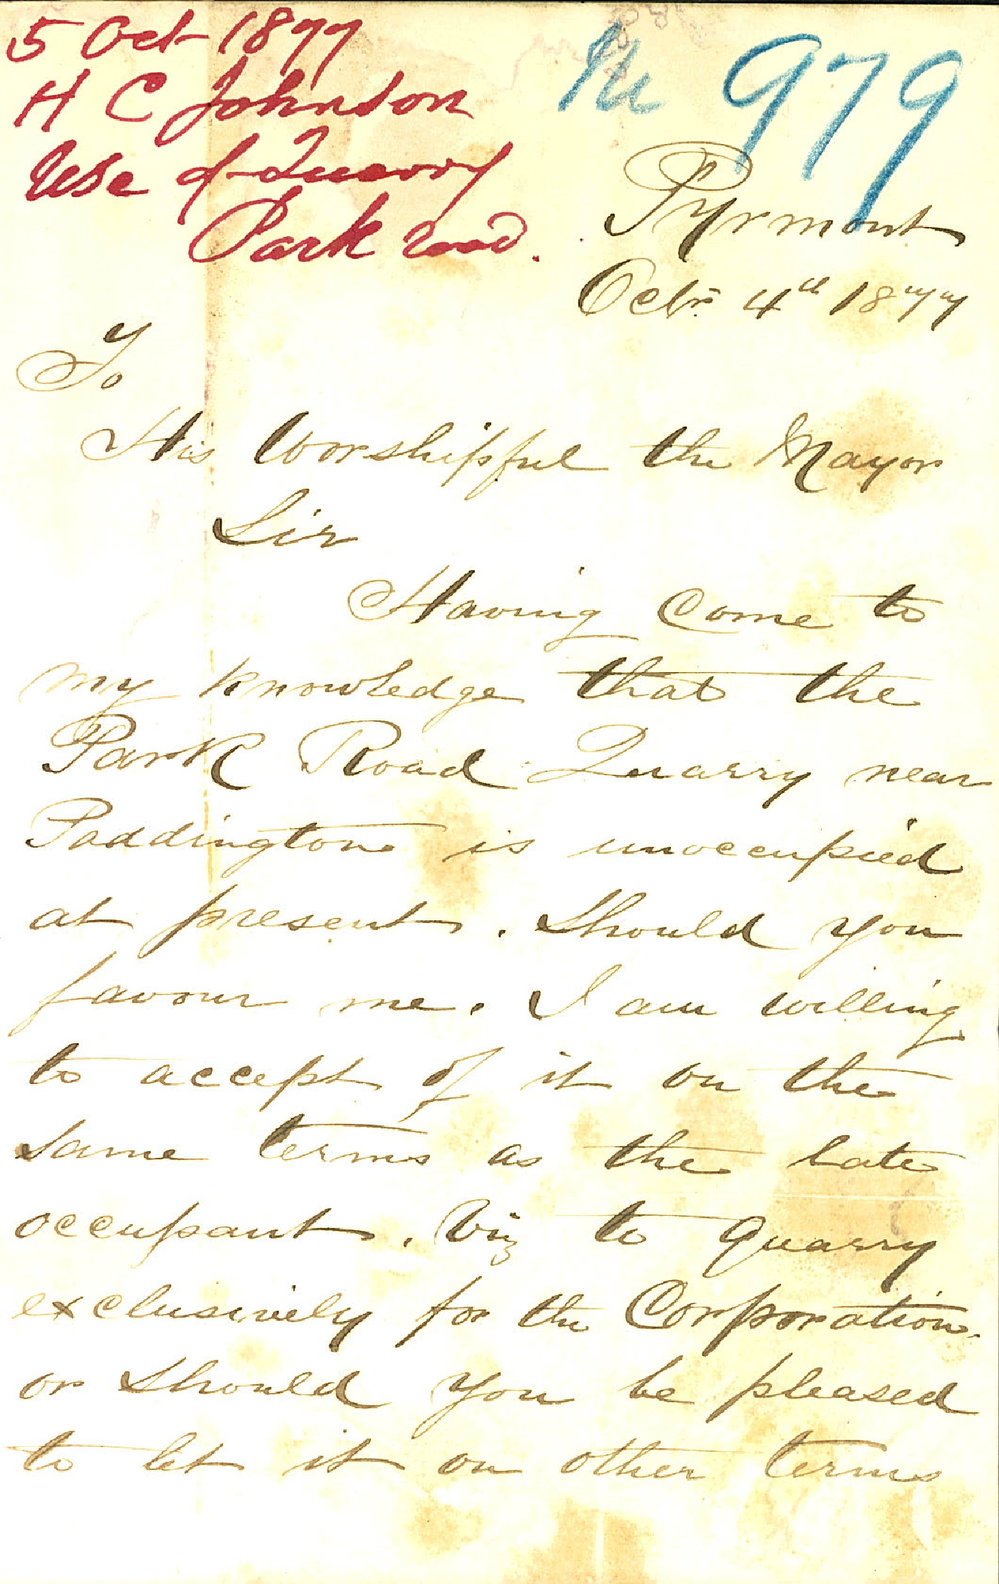 5 Oct 1877
H C Johnson
Use of Quarry
Park road.
No 979
Pyrmont
Octbr 4th 1877
To
His Worshipful the Mayor
Sir
Having Come to
my knowledge that the
Park Road Quarry near
Paddington is unoccupied
at present. Should you
favour me. I am willing
to accept of it on the
same terms as the late
occupant. Viz to Quarry
exclusively for the Corporation.
or should you be pleased
to let it on other terms